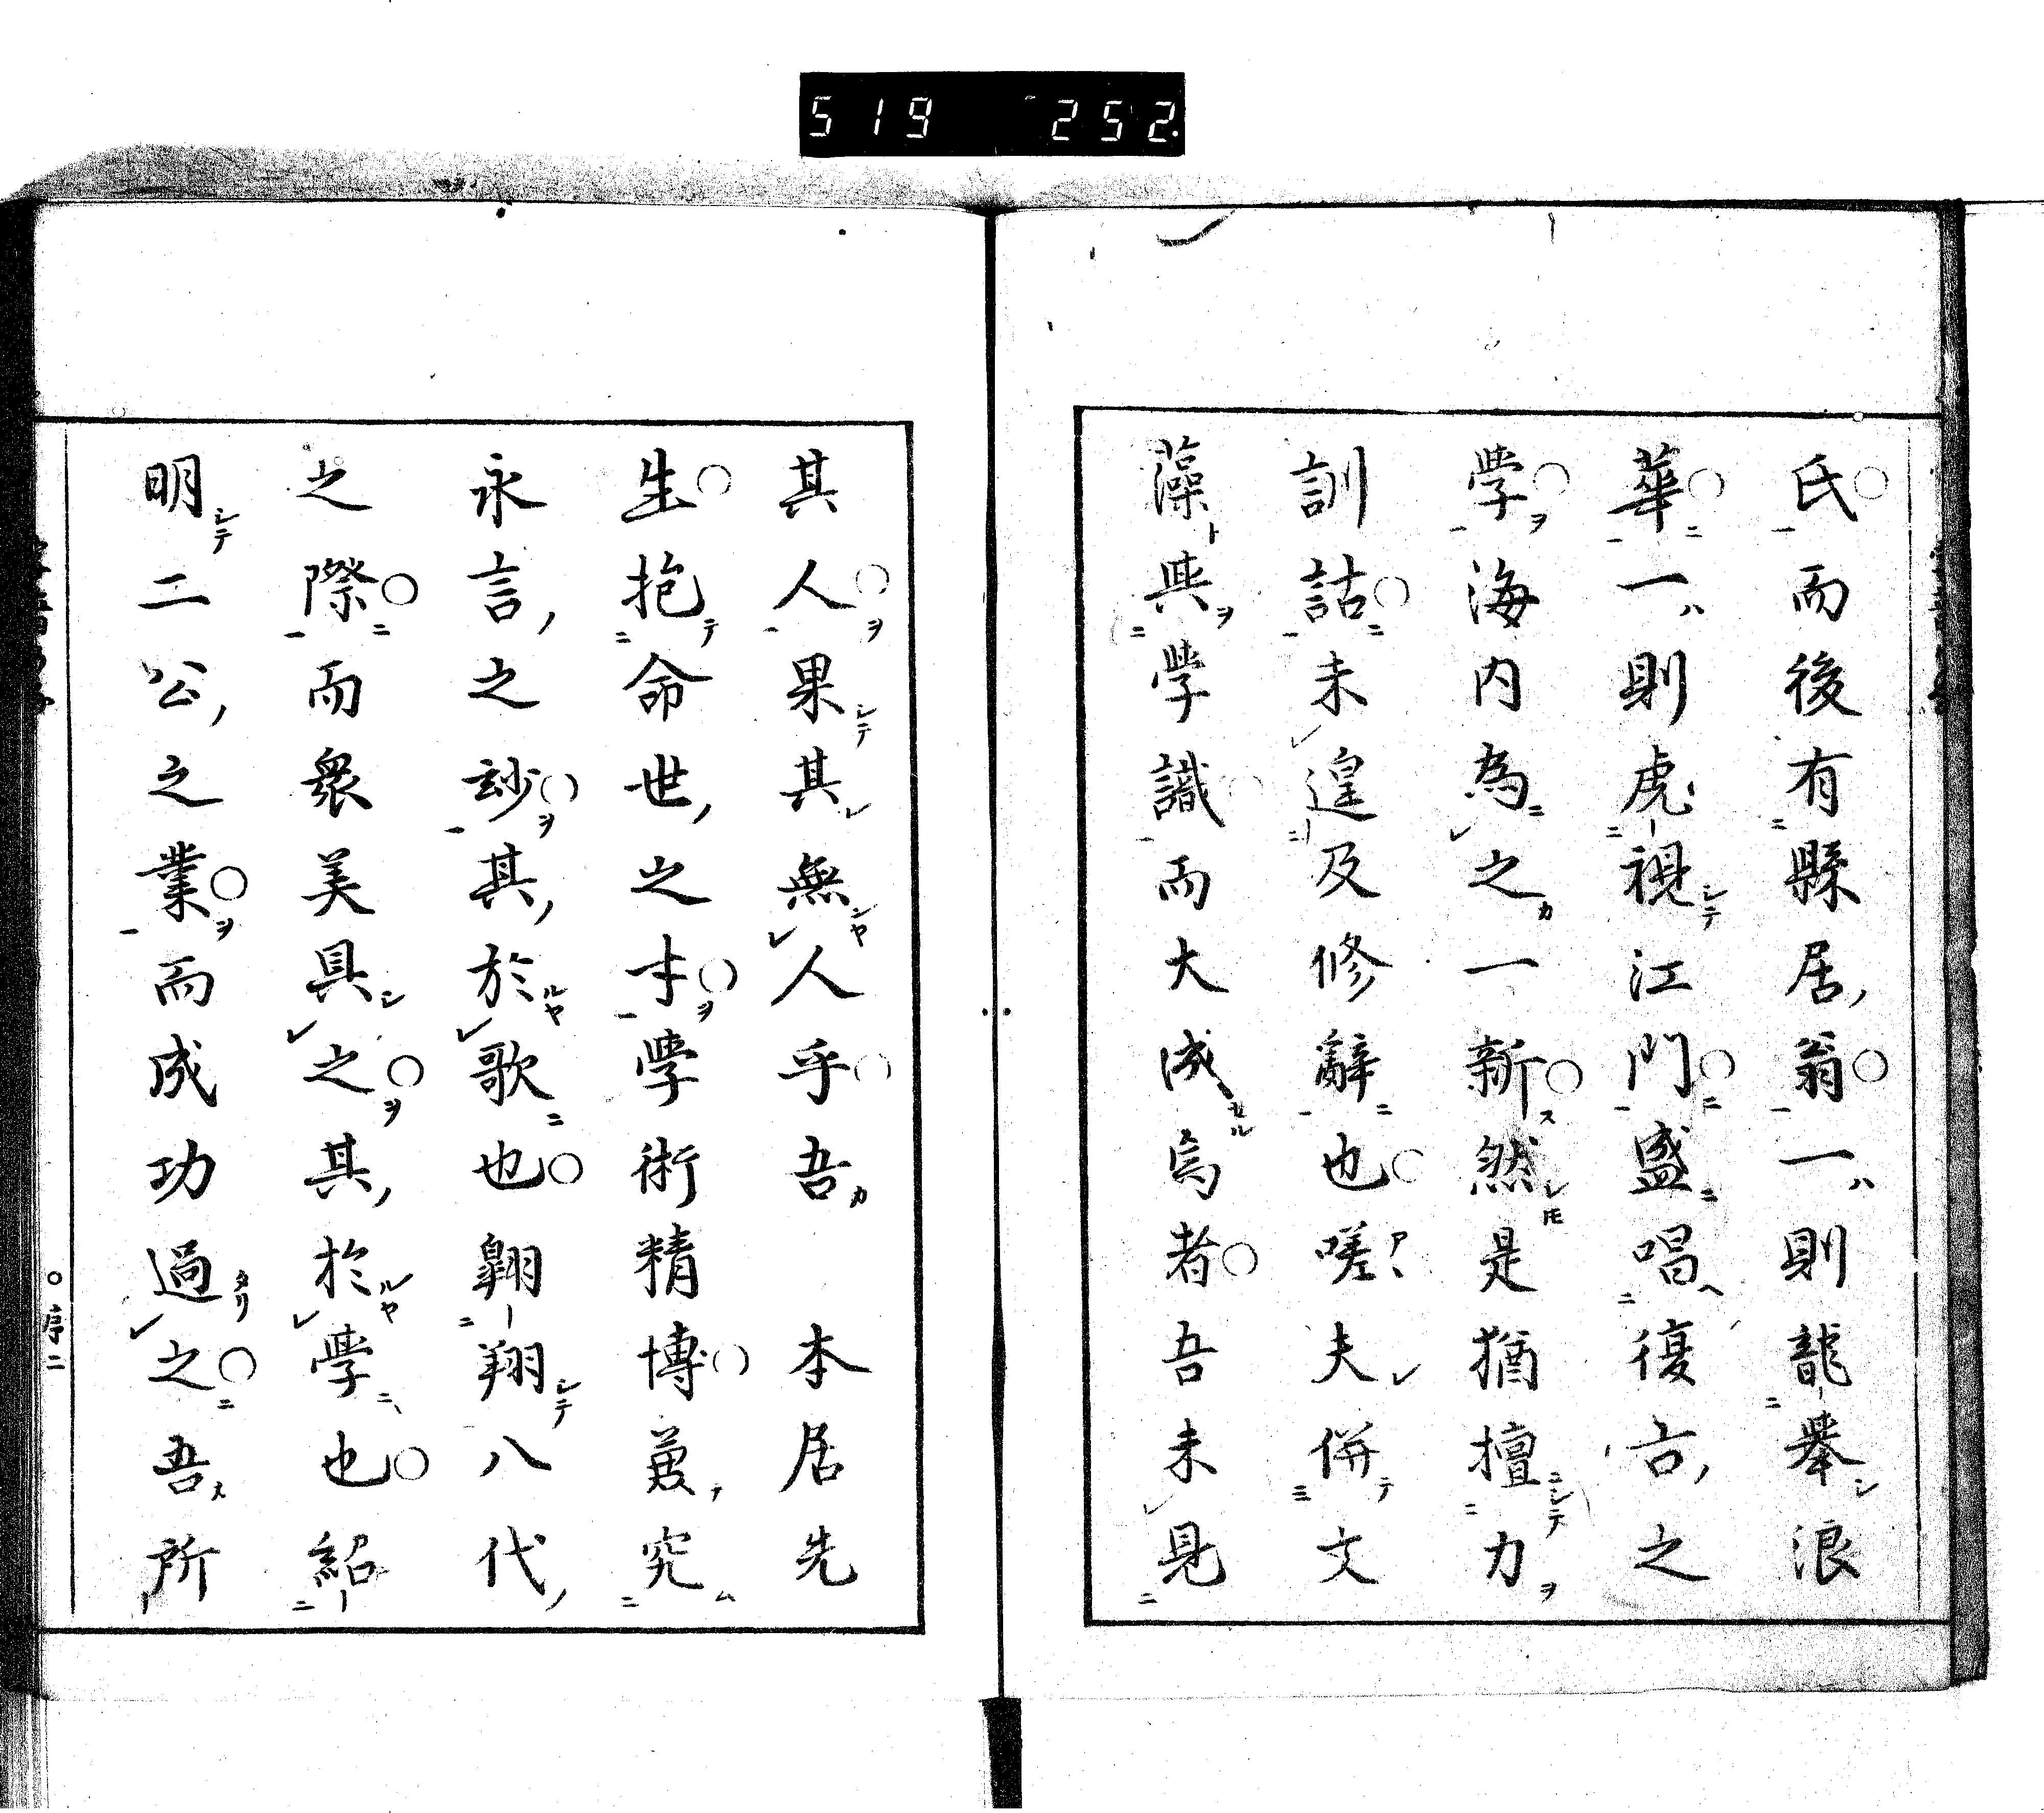 519 252.
氏而後有縣居翁一則龍舉浪
華一則虎視江門盛唱復古之
學海内為之一新然是猶擅力
訓詁未遑及修辭也嗟夫併文
藻與學識而大成焉者吾未見
其人果其無人乎吾 本居先
生抱命世之才學術精博兼究
永言之妙其於歌也翺翔八代
之際而衆美具之其於學也紹
明二公之業而成功過之吾所
序二